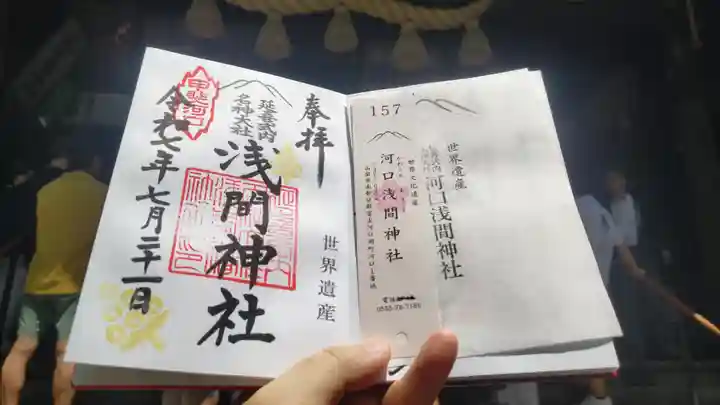 奉拝
延喜式内
名神大社
浅間神社
世界遺産
甲斐河口
令和七年七月二十一日
157
世界文化遺産
河口浅間神社
世界遺産
河口浅間神社